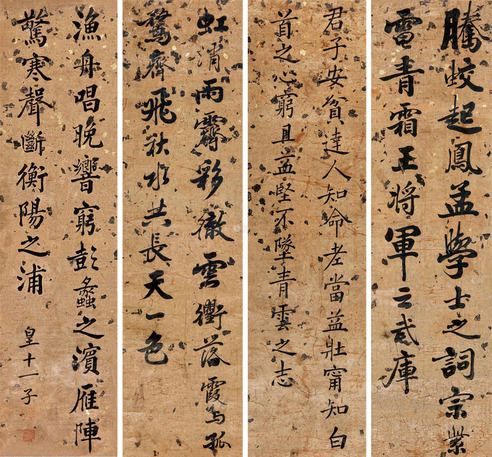 騰蛟起鳳孟學士之詞宗紫
電青霜王將軍之武庫
君子安貧達人知命老當益壯甯知白
首之心窮且益堅不墜青雲之志
虹消雨霽彩徹雲衢落霞与孤
鶩齊飛秋水共長天一色
漁舟唱晚響窮彭蠡之濱雁陣
驚寒聲斷衡陽之浦
皇十一子